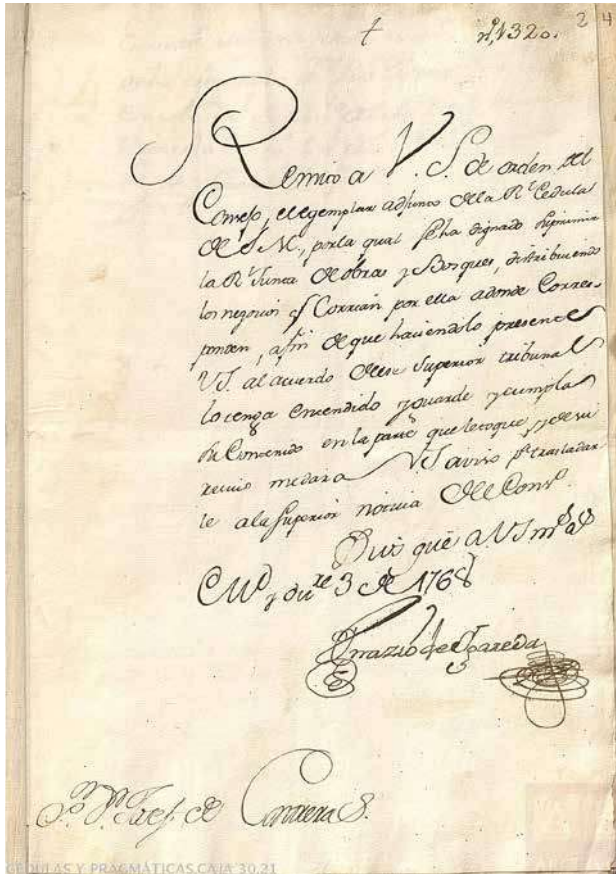 24
nº 1320.
Remito a V.S. de orden del
Consejo, el egemplar adjunto de la Rl. Cedula
de S.M., por la qual se ha dignado suprimir
la Rl. Junta de obras y Bosques, distribuiendo
los negocios q Corrian por ella adonde Corres-
ponden, a fin de que haciendolo presente
VS. al acuerdo de ese superior tribunal
lo tenga entendido y guarde y cumpla
su Contenido en la parte que le toque, y de su
recivo me dará VS aviso pa trasladar
le a la superior noticia del Consº.
Dios gue a VS ms as
Md y 3 de 1768
Ignazio de
Sor Dn de Contreras.
CEDULAS Y PRAGMÁTICAS,CAJA 30,21